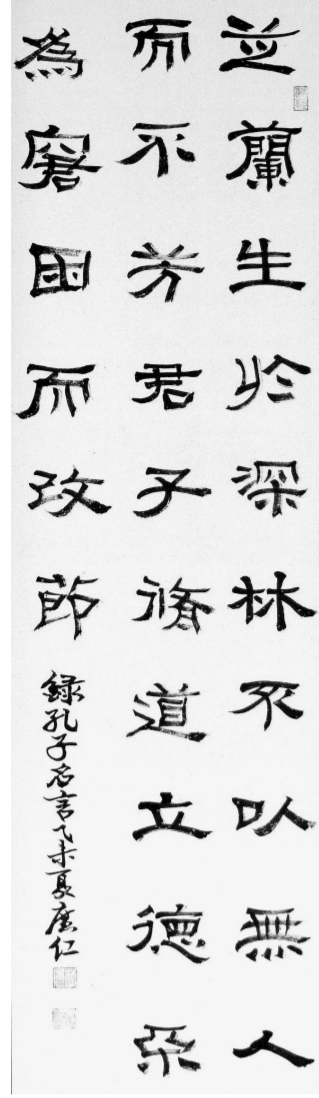 芝蘭生於深林不以無人
而不芳君子脩道立德不
為窮困而改節
錄孔子名言乙未夏廣仁